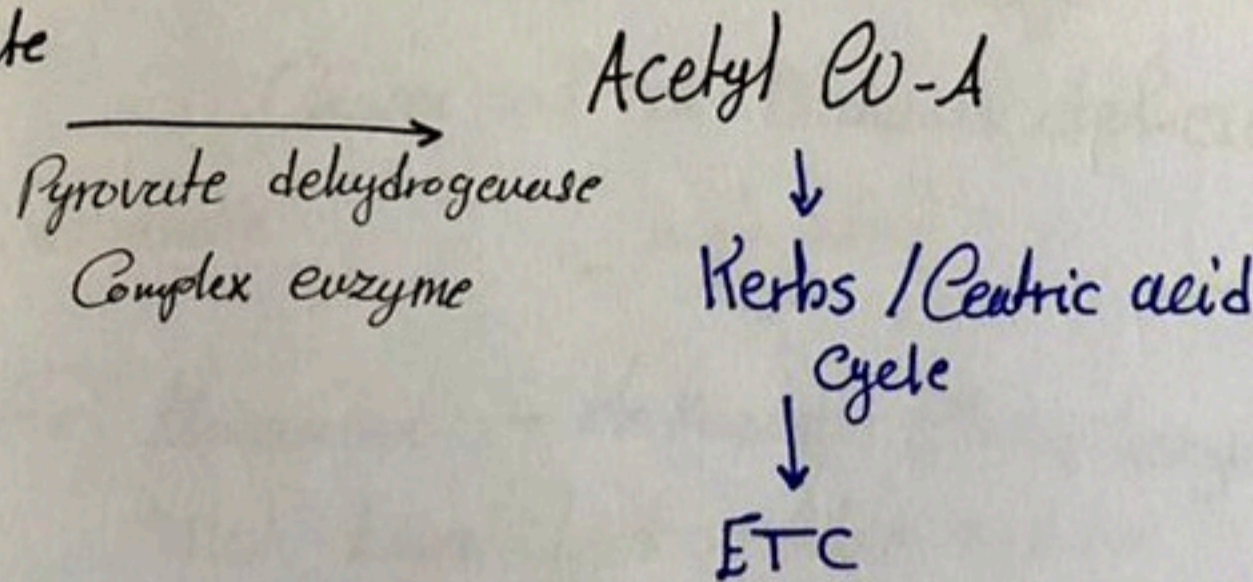 te
Acetyl Co-A
Pyrovate dehydrogenase
Complex enzyme
Kerbs / Centric acid
Cycle
ETC